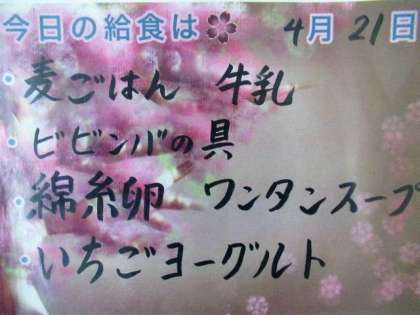 今日の給食は 4月21日
・麦ごはん 牛乳
・ビビンバの具
・綿糸卵 ワンタンスープ
・いちごヨーグルト